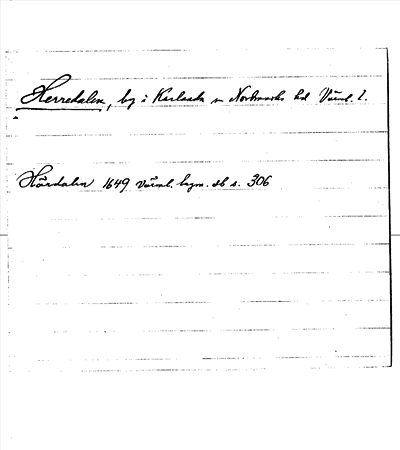 Herredalen, by i Karlanda sn Nordmarks hd Värml. l.
Härdalen 1649 Värml. hzm. db s. 306